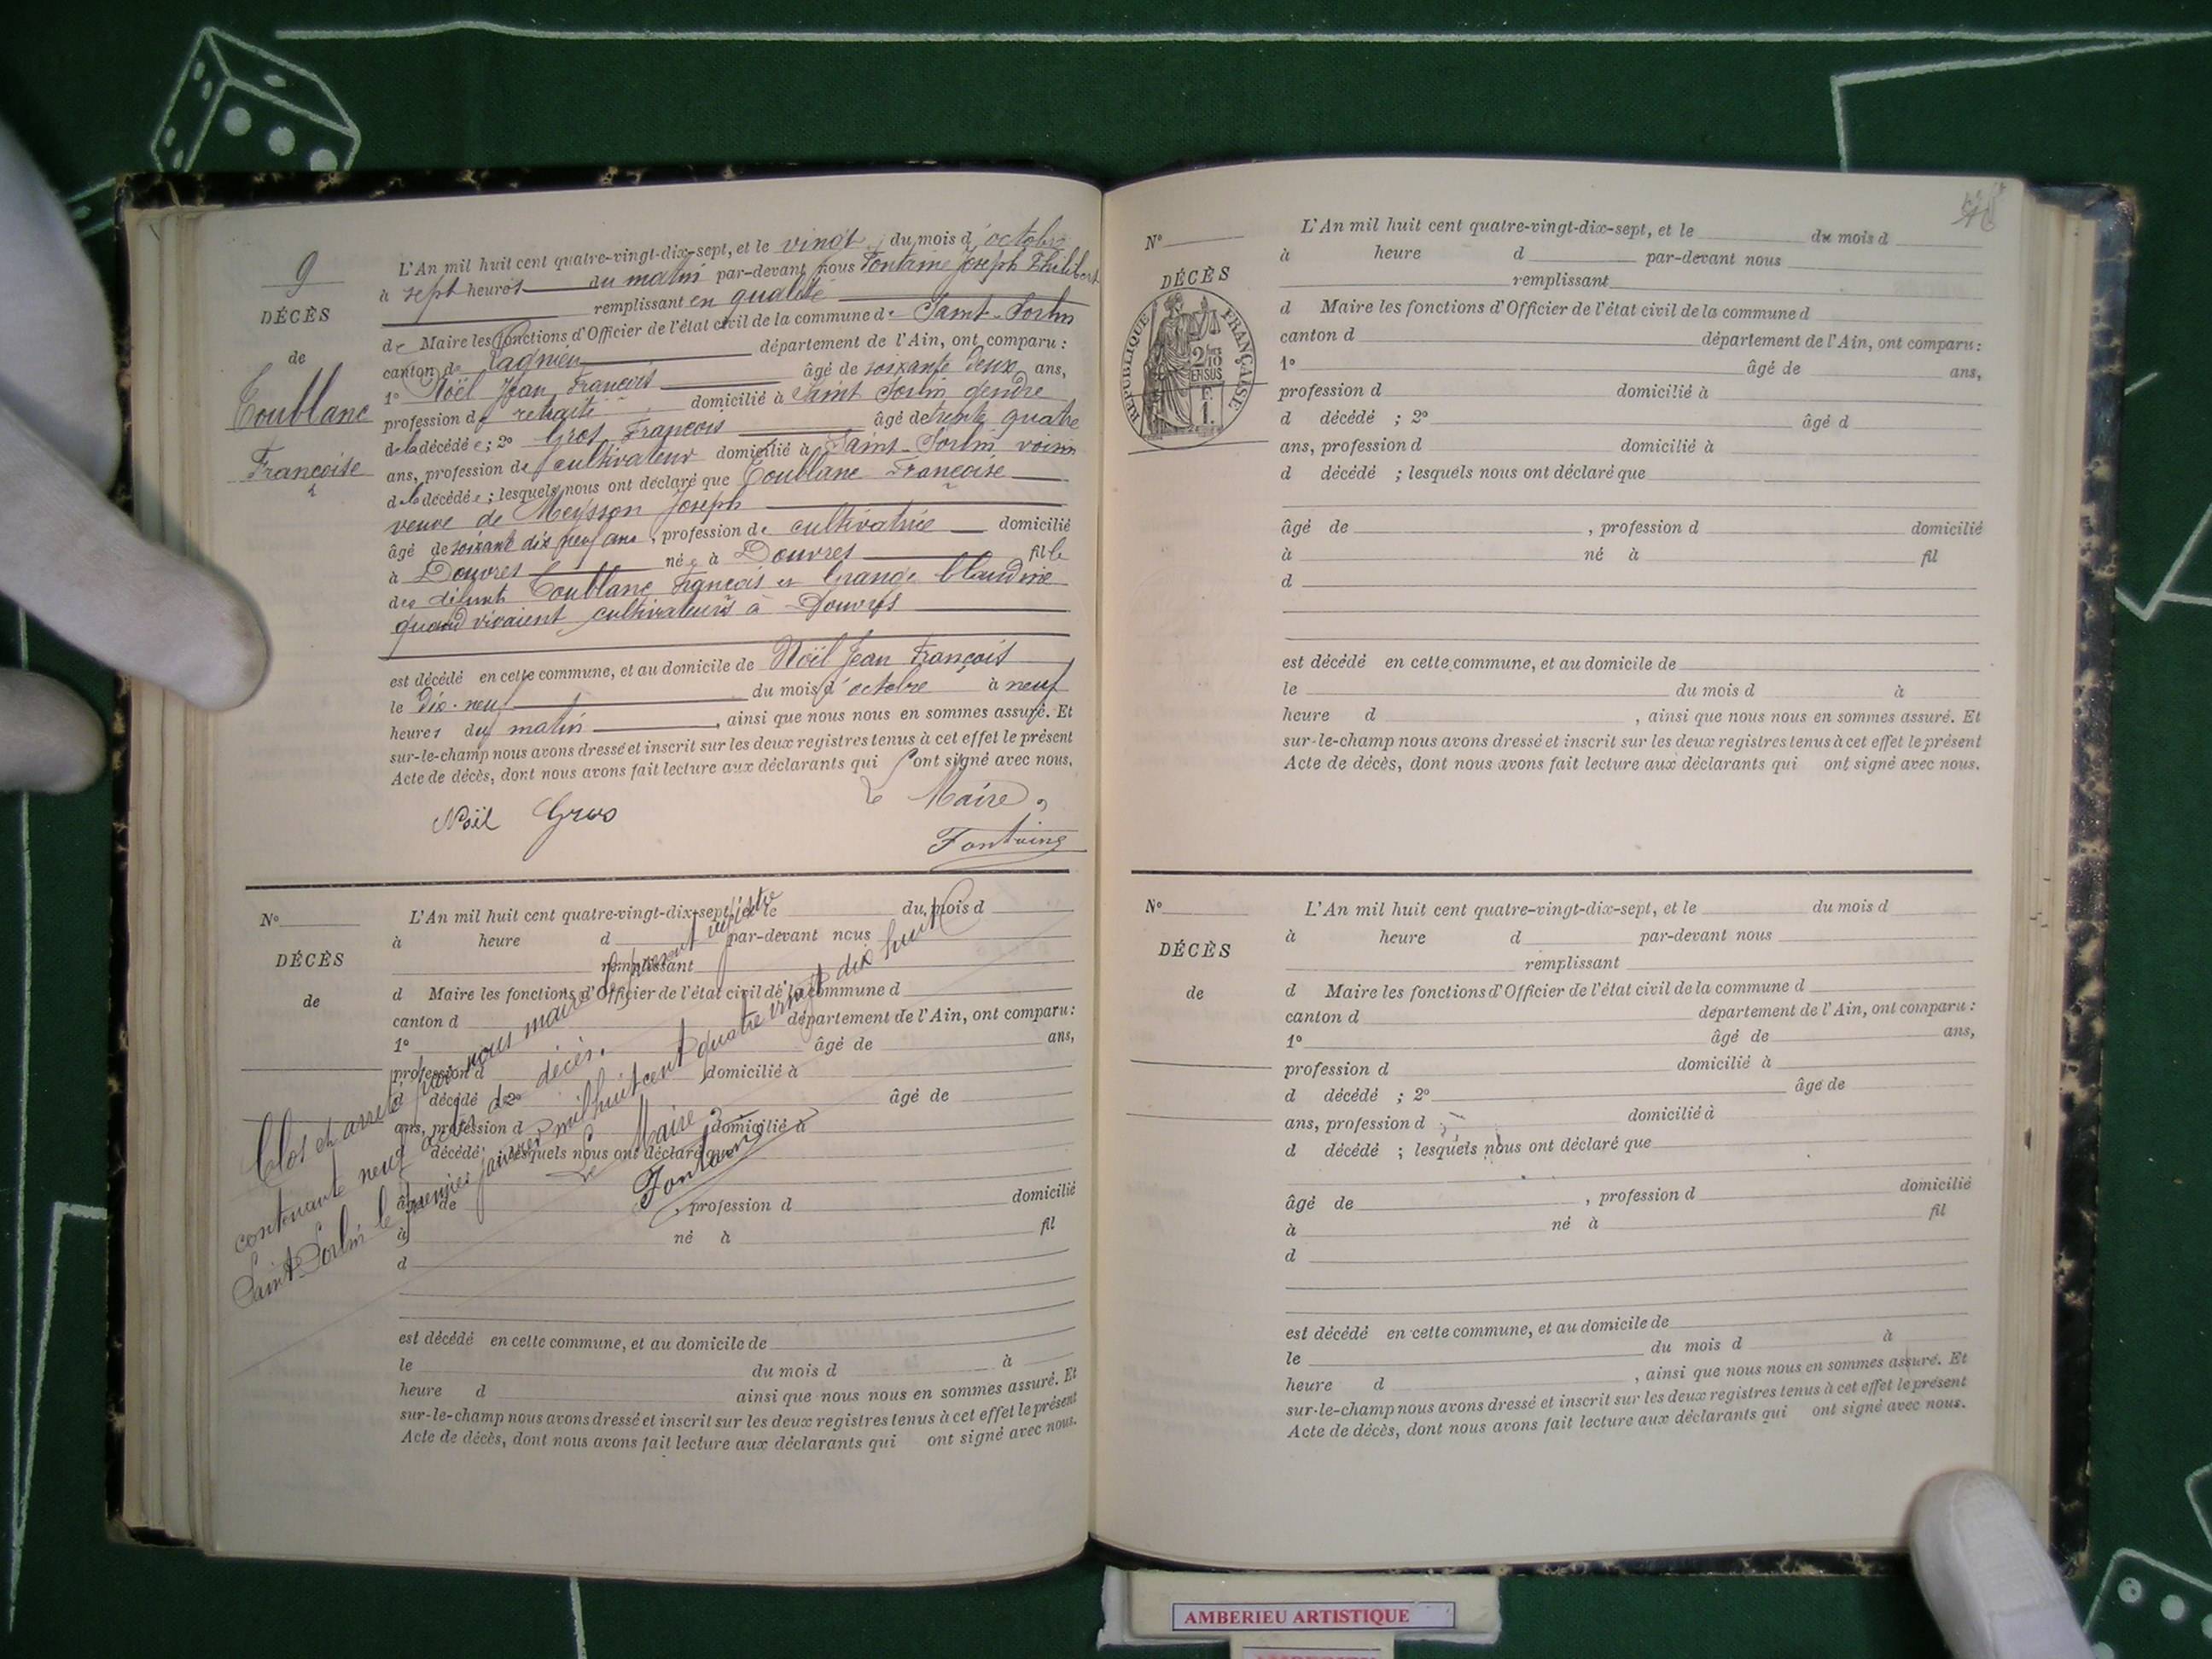 9
DÉCÈS
de
Coublanc
Françoise
L'An mil huit cent quatre-vingt-dix-sept, et le vingt du mois d'octobre
à sept heures du matin par-devant nous Fontaine Joseph Philibert
remplissant en qualité
de Maire les fonctions d'Officier de l'état civil de la commune de Saint-Sorlin
canton de Lagnieu département de l'Ain, ont comparu :
1° Noël Jean François âgé de soixante deux ans,
profession de retraité domicilié à Saint Sorlin gendre
de la décédée ; 2° Gros François âgé de trente quatre
ans, profession de cultivateur domicilié à Saint-Sorlin voisin
de la décédée ; lesquels nous ont déclaré que Coublanc Françoise
veuve de Meysson Joseph
âgé de soixante dix neuf ans, profession de cultivatrice domicilié
à Douvres née à Douvres fille
des défunts Coublanc François et Grange Claudine
quand vivaient cultivateurs à Douvres
est décédé en cette commune, et au domicile de Noël Jean François
le dix-neuf du mois d'octobre à neuf
heures du matin, ainsi que nous nous en sommes assuré. Et
sur-le-champ nous avons dressé et inscrit sur les deux registres tenus à cet effet le présent
Acte de décès, dont nous avons fait lecture aux déclarants qui ont signé avec nous.
Noël Gros Le Maire,
Fontaine
N°
DÉCÈS
de
L'An mil huit cent quatre-vingt-dix-sept, et le du mois d
à heure d par-devant nous
remplissant
d Maire les fonctions d'Officier de l'état civil de la commune d
canton d département de l'Ain, ont comparu :
1° âgé de ans,
profession d domicilié à
d décédé 2° âgé de
ans, profession d domicilié à
décédé ; lesquels nous ont déclaré que
âgé de , profession d domicilié
à né à fil
d
est décédé en cette commune, et au domicile de
le du mois d à
heure d ainsi que nous nous en sommes assuré. Et
sur-le-champ nous avons dressé et inscrit sur les deux registres tenus à cet effet le présent
Acte de décès, dont nous avons fait lecture aux déclarants qui ont signé avec nous.
Clos et arrêté par nous maire le présent registre
contenant neuf actes de décès.
Saint-Sorlin le premier janvier mil huit cent quatre vingt dix huit
Le Maire
Fontaine
N°
DÉCÈS
RÉPUBLIQUE FRANÇAISE
2/10 EN SUS
F.
1.
L'An mil huit cent quatre-vingt-dix-sept, et le du mois d
à heure d par-devant nous
remplissant
d Maire les fonctions d'Officier de l'état civil de la commune d
canton d département de l'Ain, ont comparu :
1° âgé de ans,
profession d domicilié à
d décédé ; 2° âgé d
ans, profession d domicilié à
d décédé ; lesquels nous ont déclaré que
âgé de , profession d domicilié
à né à fil
d
est décédé en cette commune, et au domicile de
le du mois d à
heure d , ainsi que nous nous en sommes assuré. Et
sur-le-champ nous avons dressé et inscrit sur les deux registres tenus à cet effet le présent
Acte de décès, dont nous avons fait lecture aux déclarants qui ont signé avec nous.
N°
DÉCÈS
de
L'An mil huit cent quatre-vingt-dix-sept, et le du mois d
à heure d par-devant nous
remplissant
d Maire les fonctions d'Officier de l'état civil de la commune d
canton d département de l'Ain, ont comparu :
1° âgé de ans,
profession d domicilié à
d décédé ; 2° âge de
ans, profession d domicilié à
d décédé ; lesquels nous ont déclaré que
âgé de , profession d domicilié
à né à fil
d
est décédé en cette commune, et au domicile de
le du mois d à
heure d , ainsi que nous nous en sommes assuré. Et
sur-le-champ nous avons dressé et inscrit sur les deux registres tenus à cet effet le présent
Acte de décès, dont nous avons fait lecture aux déclarants qui ont signé avec nous.
AMBERIEU ARTISTIQUE